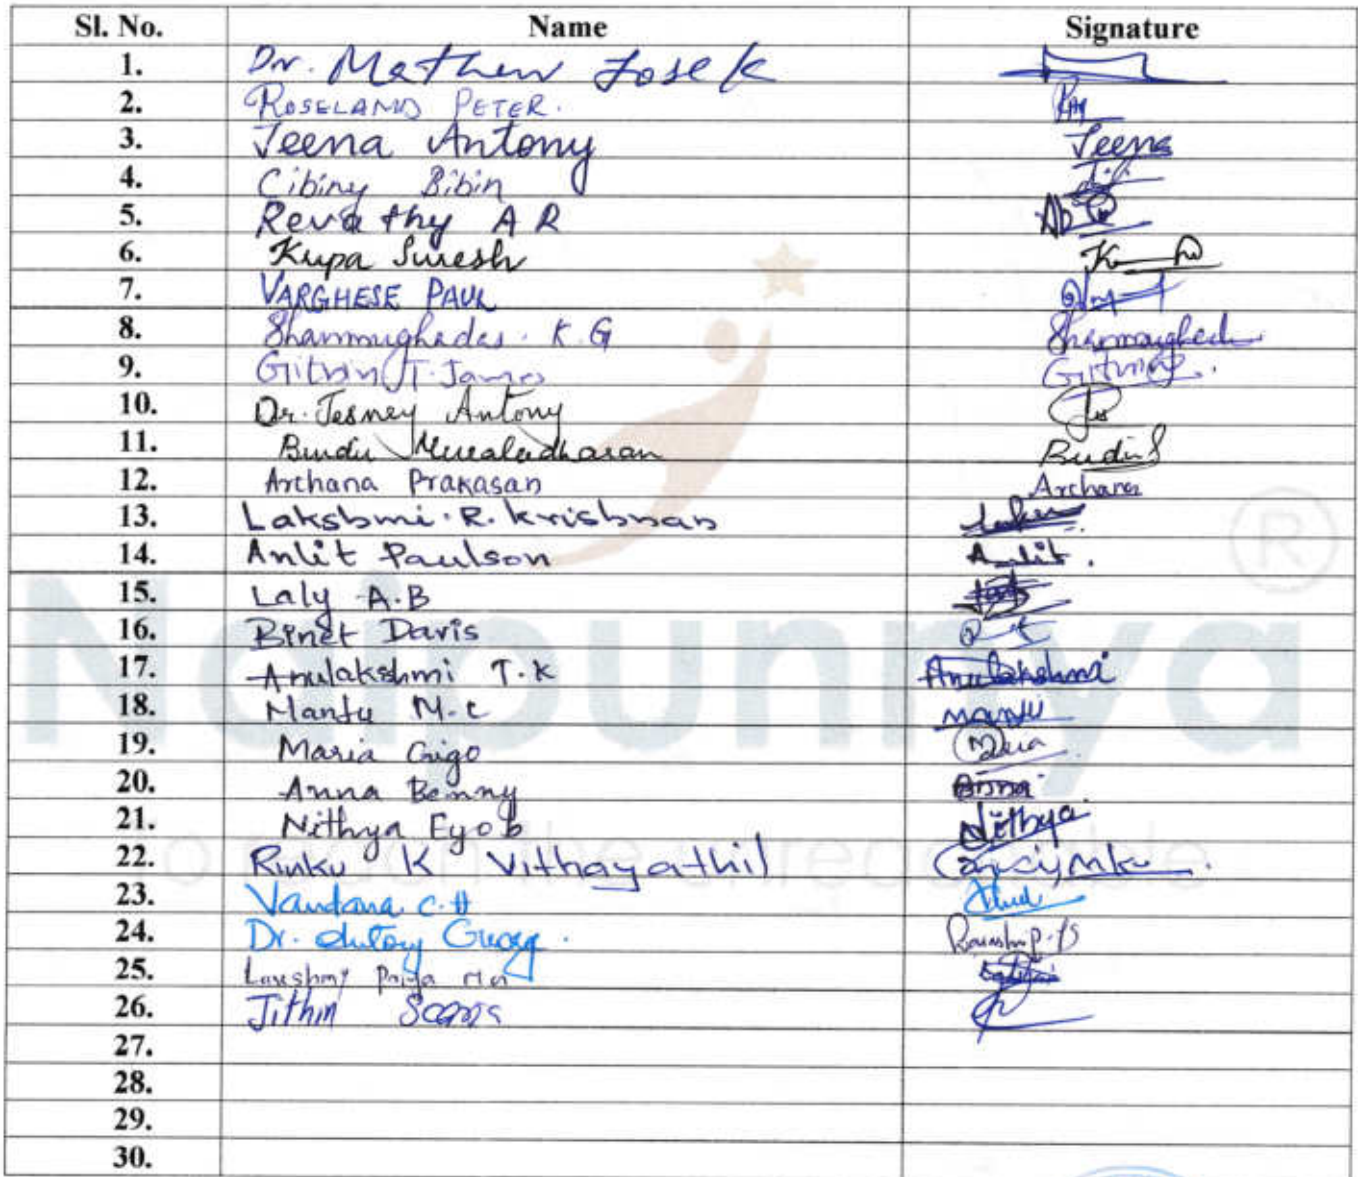 Sl. No. Name Signature
1. Dr. Mathew Jose K
2. ROSELAND PETER.
3. Jeena Antony Jeena
4. Cibiny Bibin
5. Revathy A R
6. Kupa Suresh
7. VARGHESE PAUL
8. Shanmughadas. K.G Shanmughad
9. Githin T. James Githin
10. Dr. Jesney Antony Jes
11. Bindu Muraleedharan Bindu
12. Archana Prakasan Archana
13. Lakshmi. R. Krishnan
14. Anlit Paulson Anlit.
15. Laly A.B
16. Binet Davis
17. Anulakshmi T.K Anulakshmi
18. Manju M.C Manju
19. Maria Gigo Maria
20. Anna Benny Anna
21. Nithya Eyob Nithya
22. Rinku K Vithayathil
23. Vandana C.H
24. Dr. Antony George.
25. Lakshmi Priya
26. Jithin
27.
28.
29.
30.
Naipunnya ®
To reach the unreachable